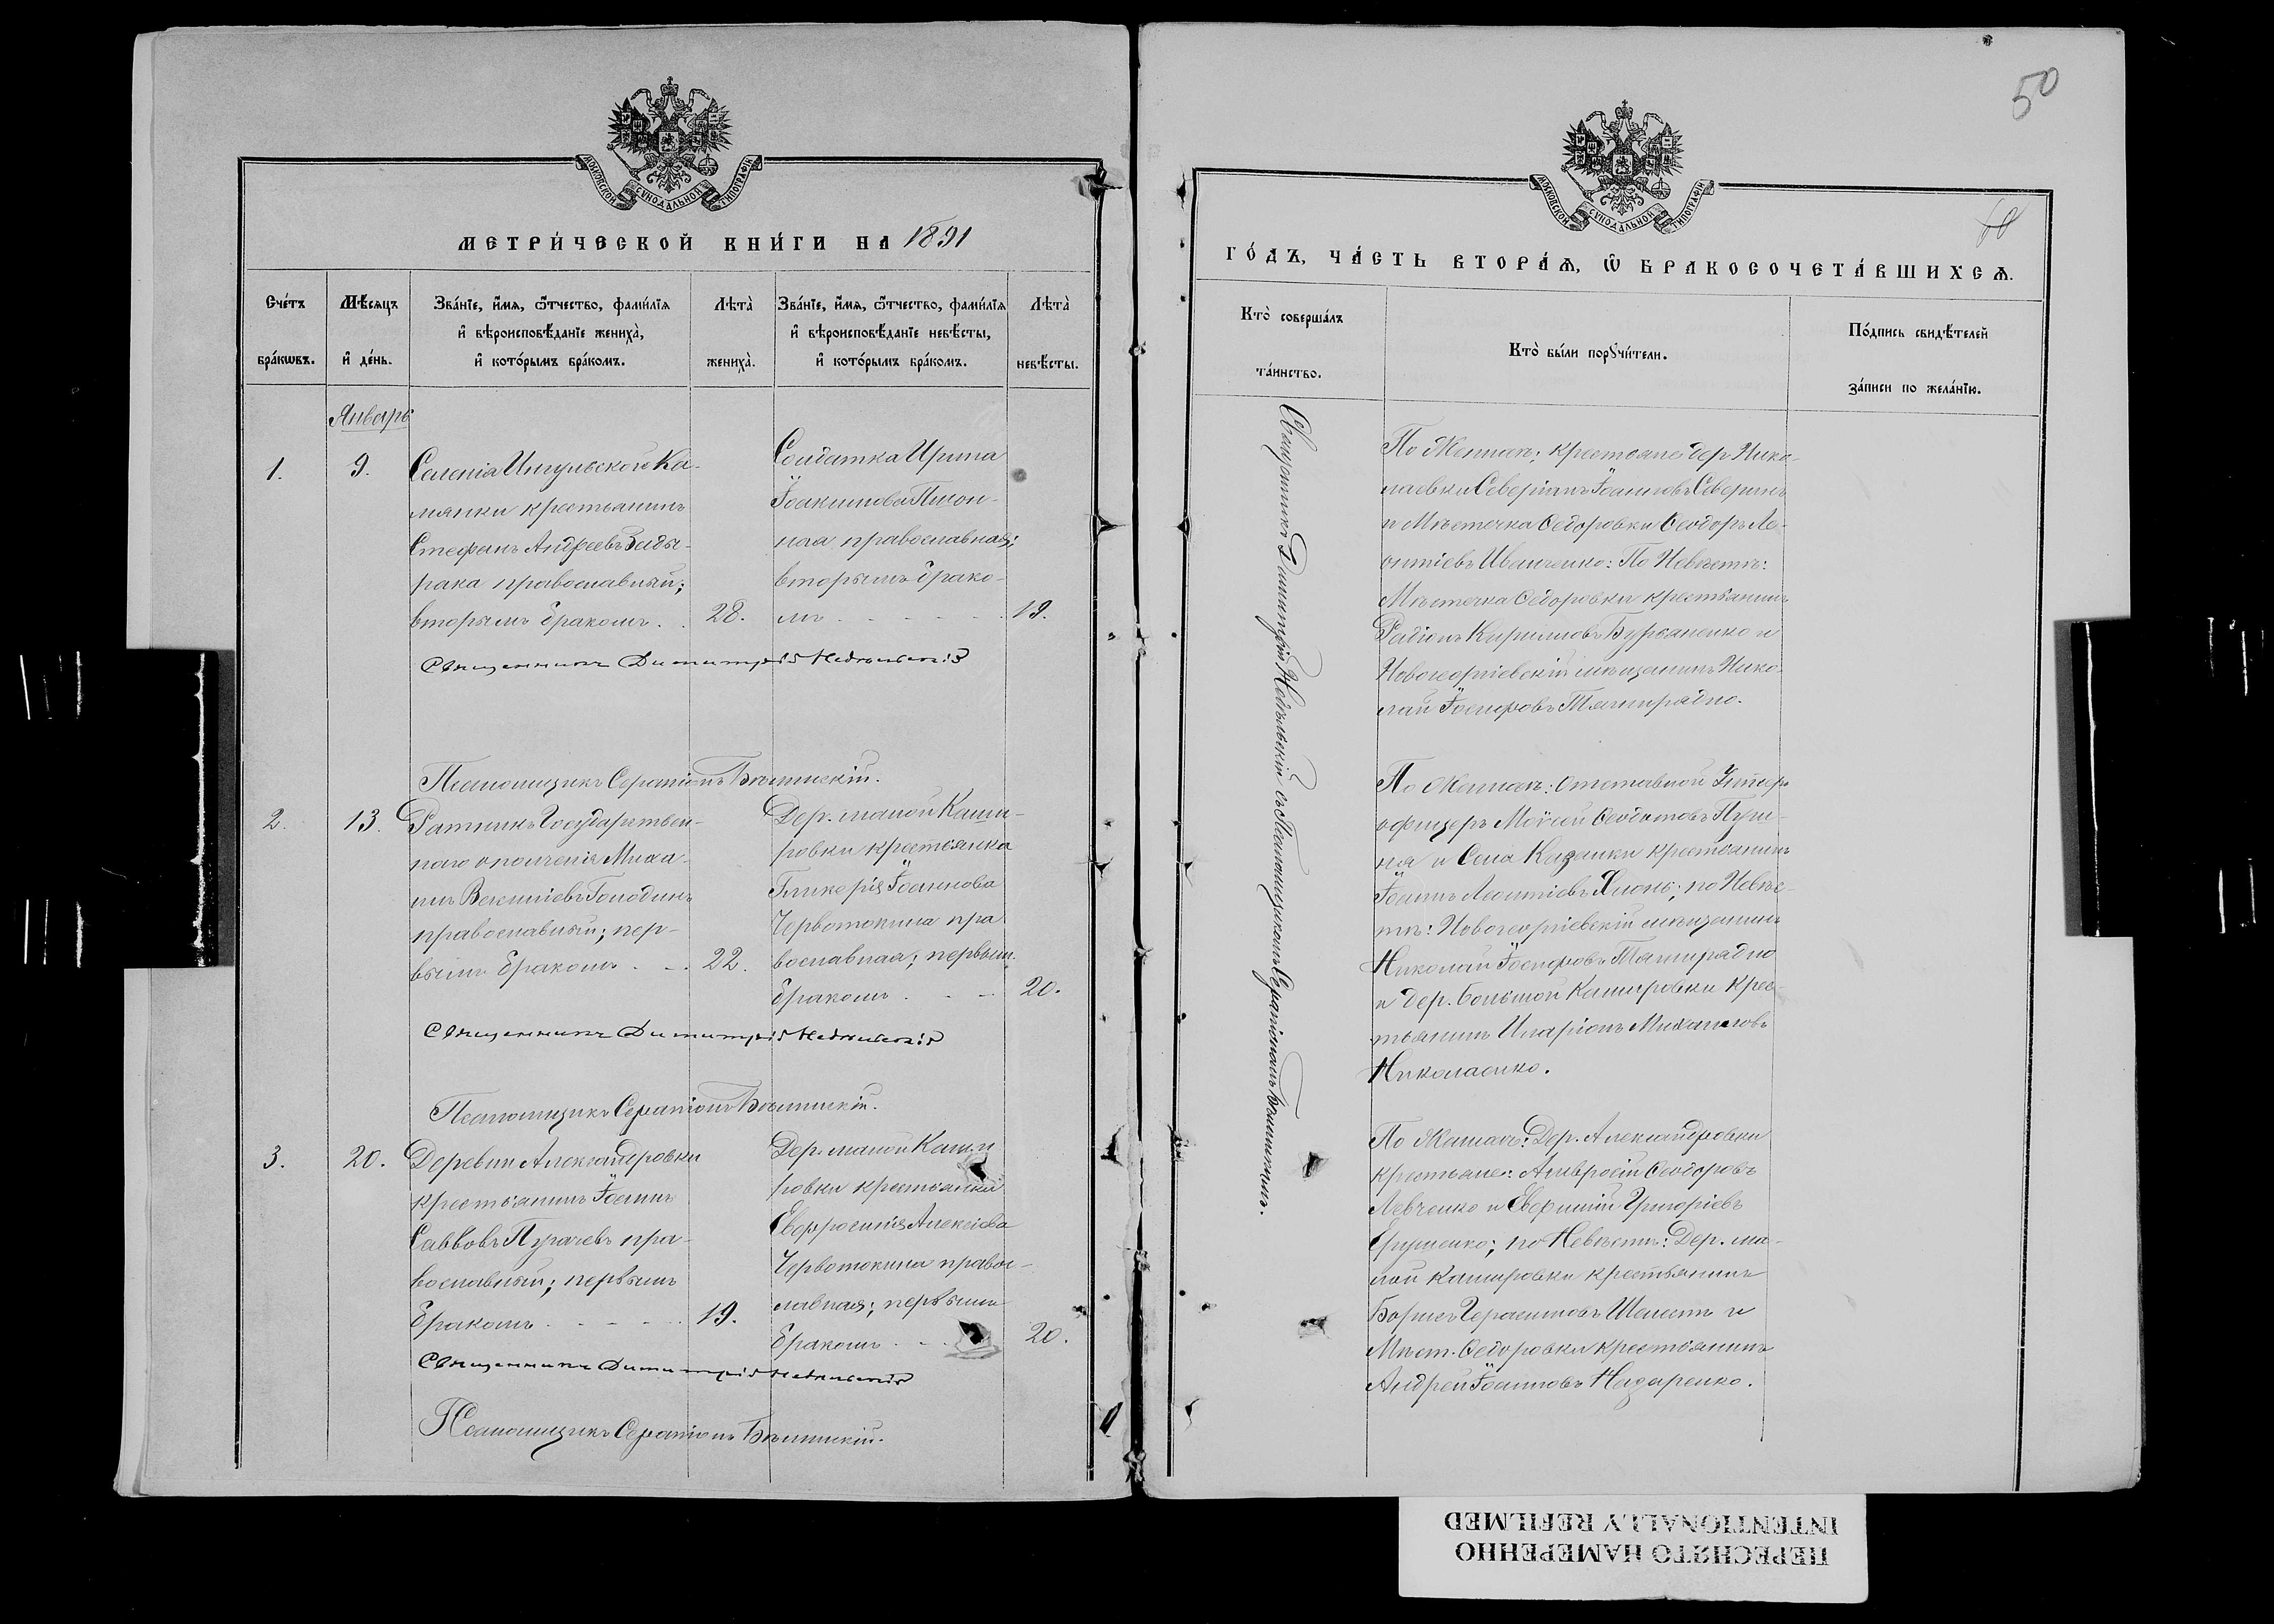 МОСКОВСКОЙ СУНОДАЛЬНОЙ ТИПОГРАФІИ
МЕТРИ́ЧЕСКОЙ КНИ́ГИ НА 1891
Сче́тъ бра́кѡвъ.
Мѣ́сяцъ и҆ де́нь.
Зва́нїе, и҆́мя, ѻ҆́тчество, фами́лїя
и҆ вѣроисповѣ́данїе жениха̀,
и҆ кото́рымъ бра́комъ.
Лѣта̀ жениха̀.
Зва́нїе, и҆́мя, ѻ҆́тчество, фами́лїя
и҆ вѣроисповѣ́данїе невѣ́сты,
и҆ кото́рымъ бра́комъ.
Лѣта̀ невѣ́сты.
Январь
1.
9.
Селенія Ингульской Ка-
мянки крестьянинъ
Стефанъ Андреевъ
рака православный;
вторымъ бракомъ . .
28.
Солдатка Ирина
Іоакимова
ная православная;
вторымъ брако-
мъ
19.
Священникъ Димитрій Недѣльскій
Псаломщикъ Серапіонъ
2.
13.
Ратникъ Государствен-
наго ополченія Миха-
илъ Голодинъ
православный; пер-
вымъ бракомъ . - .
22.
Дер. малой Каши-
ровки крестьянка
Гликерія Іоаннова
Червоткина пра-
вославная; первым.
бракомъ . - -
20.
Священникъ Димитрій Недѣльскій
Псаломщикъ Серапіонъ
3.
20.
Деревни Александровки
крестьянинъ Іоаннъ
Саввовъ Пугачевъ пра-
вославный; первымъ
бракомъ . - - - .
19.
Дер. малой Каши
ровки крестьянка
Евфросинія Алексіева
Червоткина правос-
лавная; первымъ
бракомъ . - -
20.
Священникъ Димитрій Недѣльскій
Псаломщикъ Серапіонъ
50
МОСКОВСКОЙ СУНОДАЛЬНОЙ ТИПОГРАФІИ
ГО́ДЪ, ЧА́СТЬ ВТОРА́Ѧ, Ѡ҆ БРАКОСОЧЕТА́ВШИХСѦ.
Кто̀ соверша́лъ та́инство.
Кто̀ бы́ли порꙋчи́тели.
По́дпись свидѣ́телей за́писи по жела́нїю.
Священникъ Димитрій Недѣльскій съ Псаломщикомъ Серапіономъ
По Женихѣ: крестьяне дер Нико-
лаевки Северіанъ Іоанновъ Северинъ
и Мѣстечка Ѳедоровки Ѳеодоръ Ле-
онтіевъ Иванченко: По Невѣстѣ:
Мѣстечка Ѳедоровки крестьянинъ
Радіонъ Кирилловъ Бурьяненко и
Новогеоргіевскій мѣщанинъ Нико-
лай Іосифовъ
По Женихѣ: Отставной Унтеръ
офицеръ Моѵсей Ѳеодотовъ
и Села Казанки крестьянинъ
Іоаннъ Леонтіевъ по Невѣс-
тѣ: Новогеоргіевскій мѣщанинъ
Николай Іосифовъ
и дер. Большой Кашировки крес-
тьянинъ Иларіонъ Михаиловъ
Николаенко.
По Женихѣ: Дер. Александровки
крестьяне: Амвросій Ѳеодоровъ
Левченко и Евфимій Григоріевъ
по Невѣстѣ: Дер. ма-
лой Кашировки крестьянинъ
Борисъ Герасимовъ Шелестъ и
Мѣст. Ѳедоровки крестьянинъ
Андрей Іоанновъ Назаренко.
ПЕРЕСНЯТО НАМЕРЕННО
INTENTIONALLY REFILMED